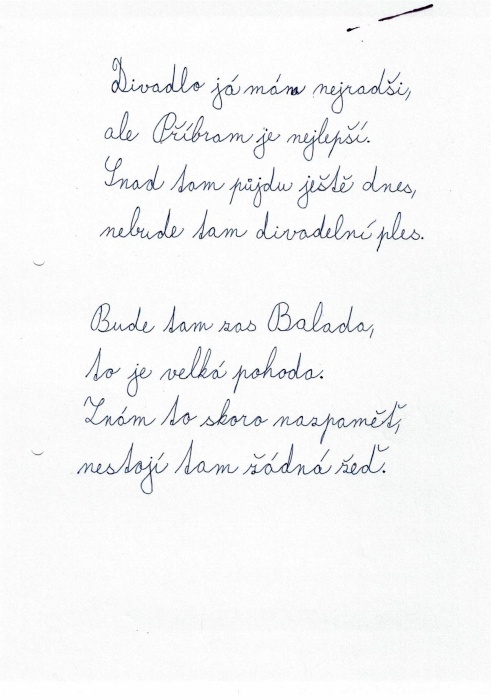 Divadlo já mám nejradši,
ale Příbram je nejlepší.
Snad tam půjdu ještě dnes,
nebude tam divadelní ples.
Bude tam zas Balada,
to je velká pohoda.
Znám to skoro nazpaměť,
nestojí tam žádná žeď.